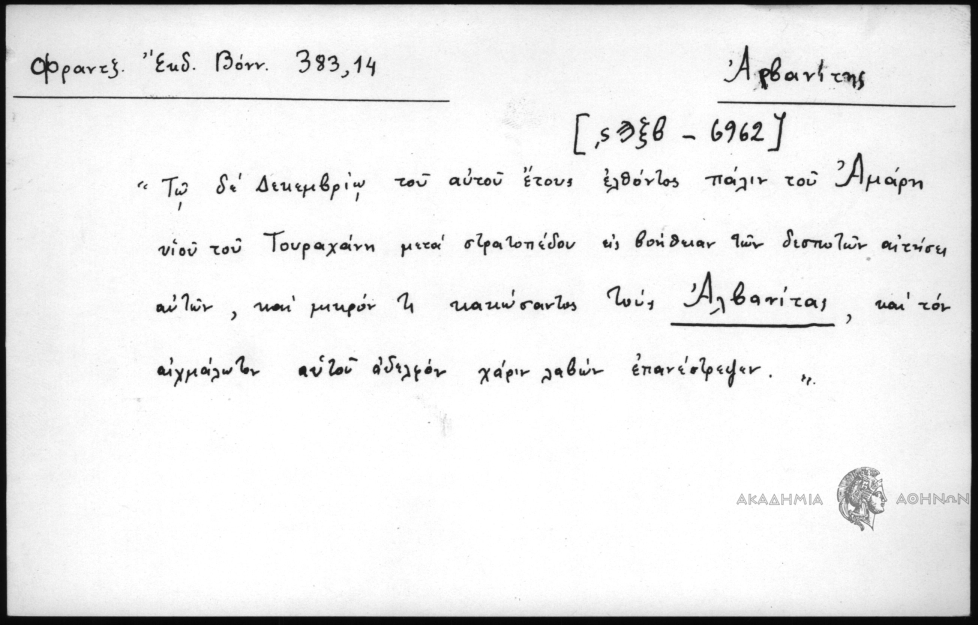 Φραντξ. Ἔκδ. Βόνν. 383,14
Ἀρβανίτης
[͵ϛϡξβ – 6962]
“ Τῷ δέ Δεκεμβρίῳ τοῦ αὐτοῦ ἔτους ἐλθόντος πάλιν τοῦ Ἀμάρη
υἱοῦ τοῦ Τουραχάνη μετά στρατοπέδου εἰς βοήθειαν τῶν δεσποτῶν αἰτήσει
αὐτῶν, καί μικρόν τι κακώσαντος τούς Ἀλβανίτας, καί τόν
αἰχμάλωτον αὑτοῦ ἀδελφόν χάριν λαβών ἐπανέστρεψεν. „.
ΑΚΑΔΗΜΙΑ ΑΘΗΝΩΝ